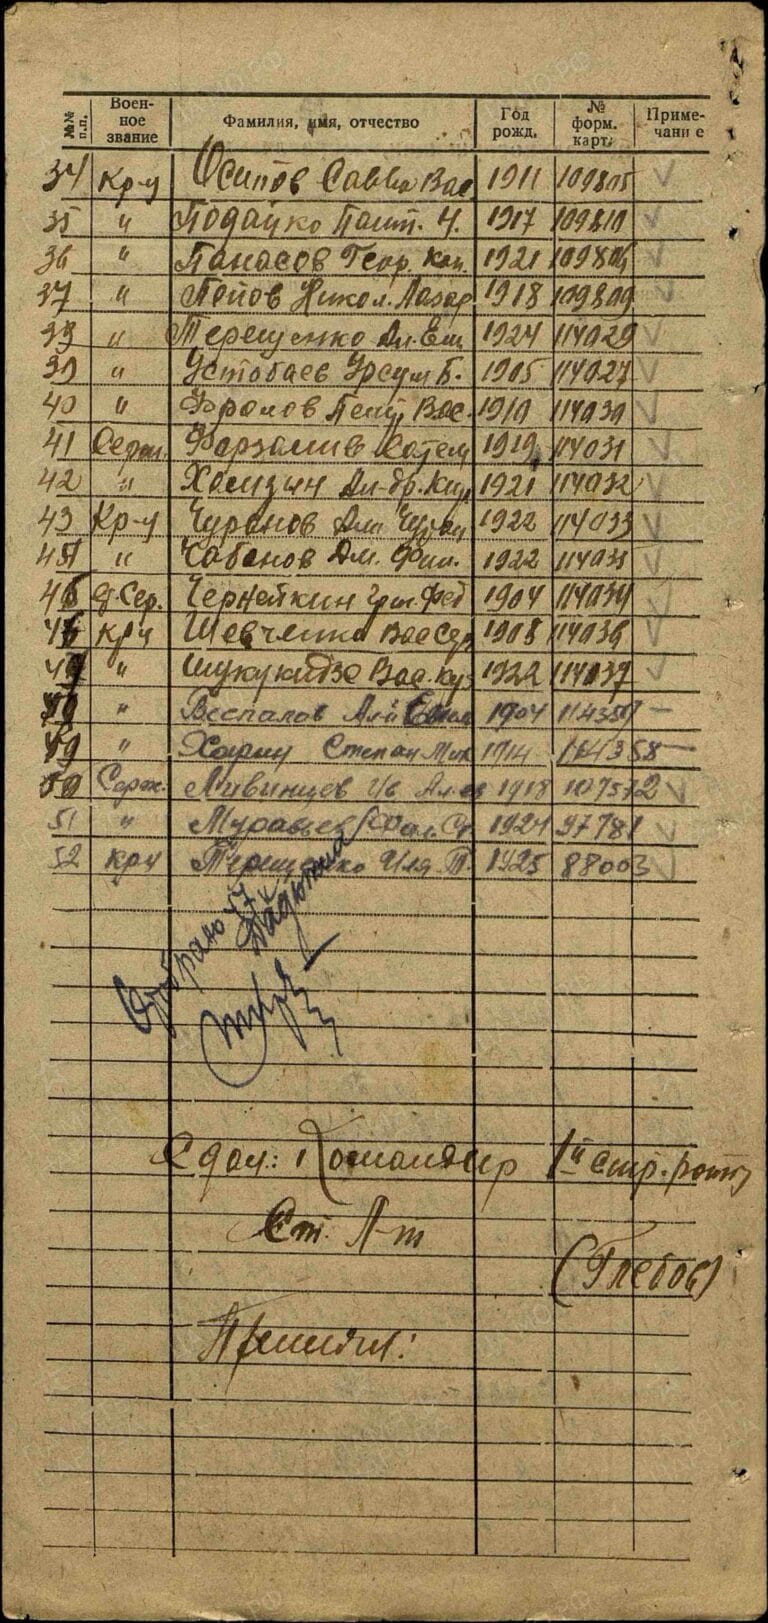 №№ п.п. Воен-ное звание Фамилия, имя, отчество Год рожд. № форм. карт. Приме-чание
34 Кр-ц Осипов Савва Вас. 1911 109805
35 " Подайко Пант. Ч. 1917 109810
36 " Панасов Геор. Кон. 1921 109806
37 " Попов Никол. Лазар 1918 109809
38 " Терещенко Ал. Ем. 1924 114029
39 " Устобаев Урсум Б. 1905 114027
40 " Фролов Петр Вас. 1910 114030
41 Сержан. 1919 114031
42 " Хамзин Ал-др. 1921 114032
43 Кр-ц Чуранов 1922 114033
" Чабанов Дм. Фил. 1922 11403
Сер. Чернейкин Гри. Фед 1904 114034
кр-ц Шевченко Вас Сер 1908 114036
" Вас. 1922 114037
" Беспалов 1904 114357 —
" Харин Степан Мих 1914 114358 —
50 Серж. Ливинцев Ив Ал-ев 1918 107572
51 " Муравьев 1924 97781
52 крц Терещенко Илья Т. 1925 88003
Отобрано 47
Сдал: Командир 1й стр. роты
Ст. Л-т
(Глебов)
Принял: